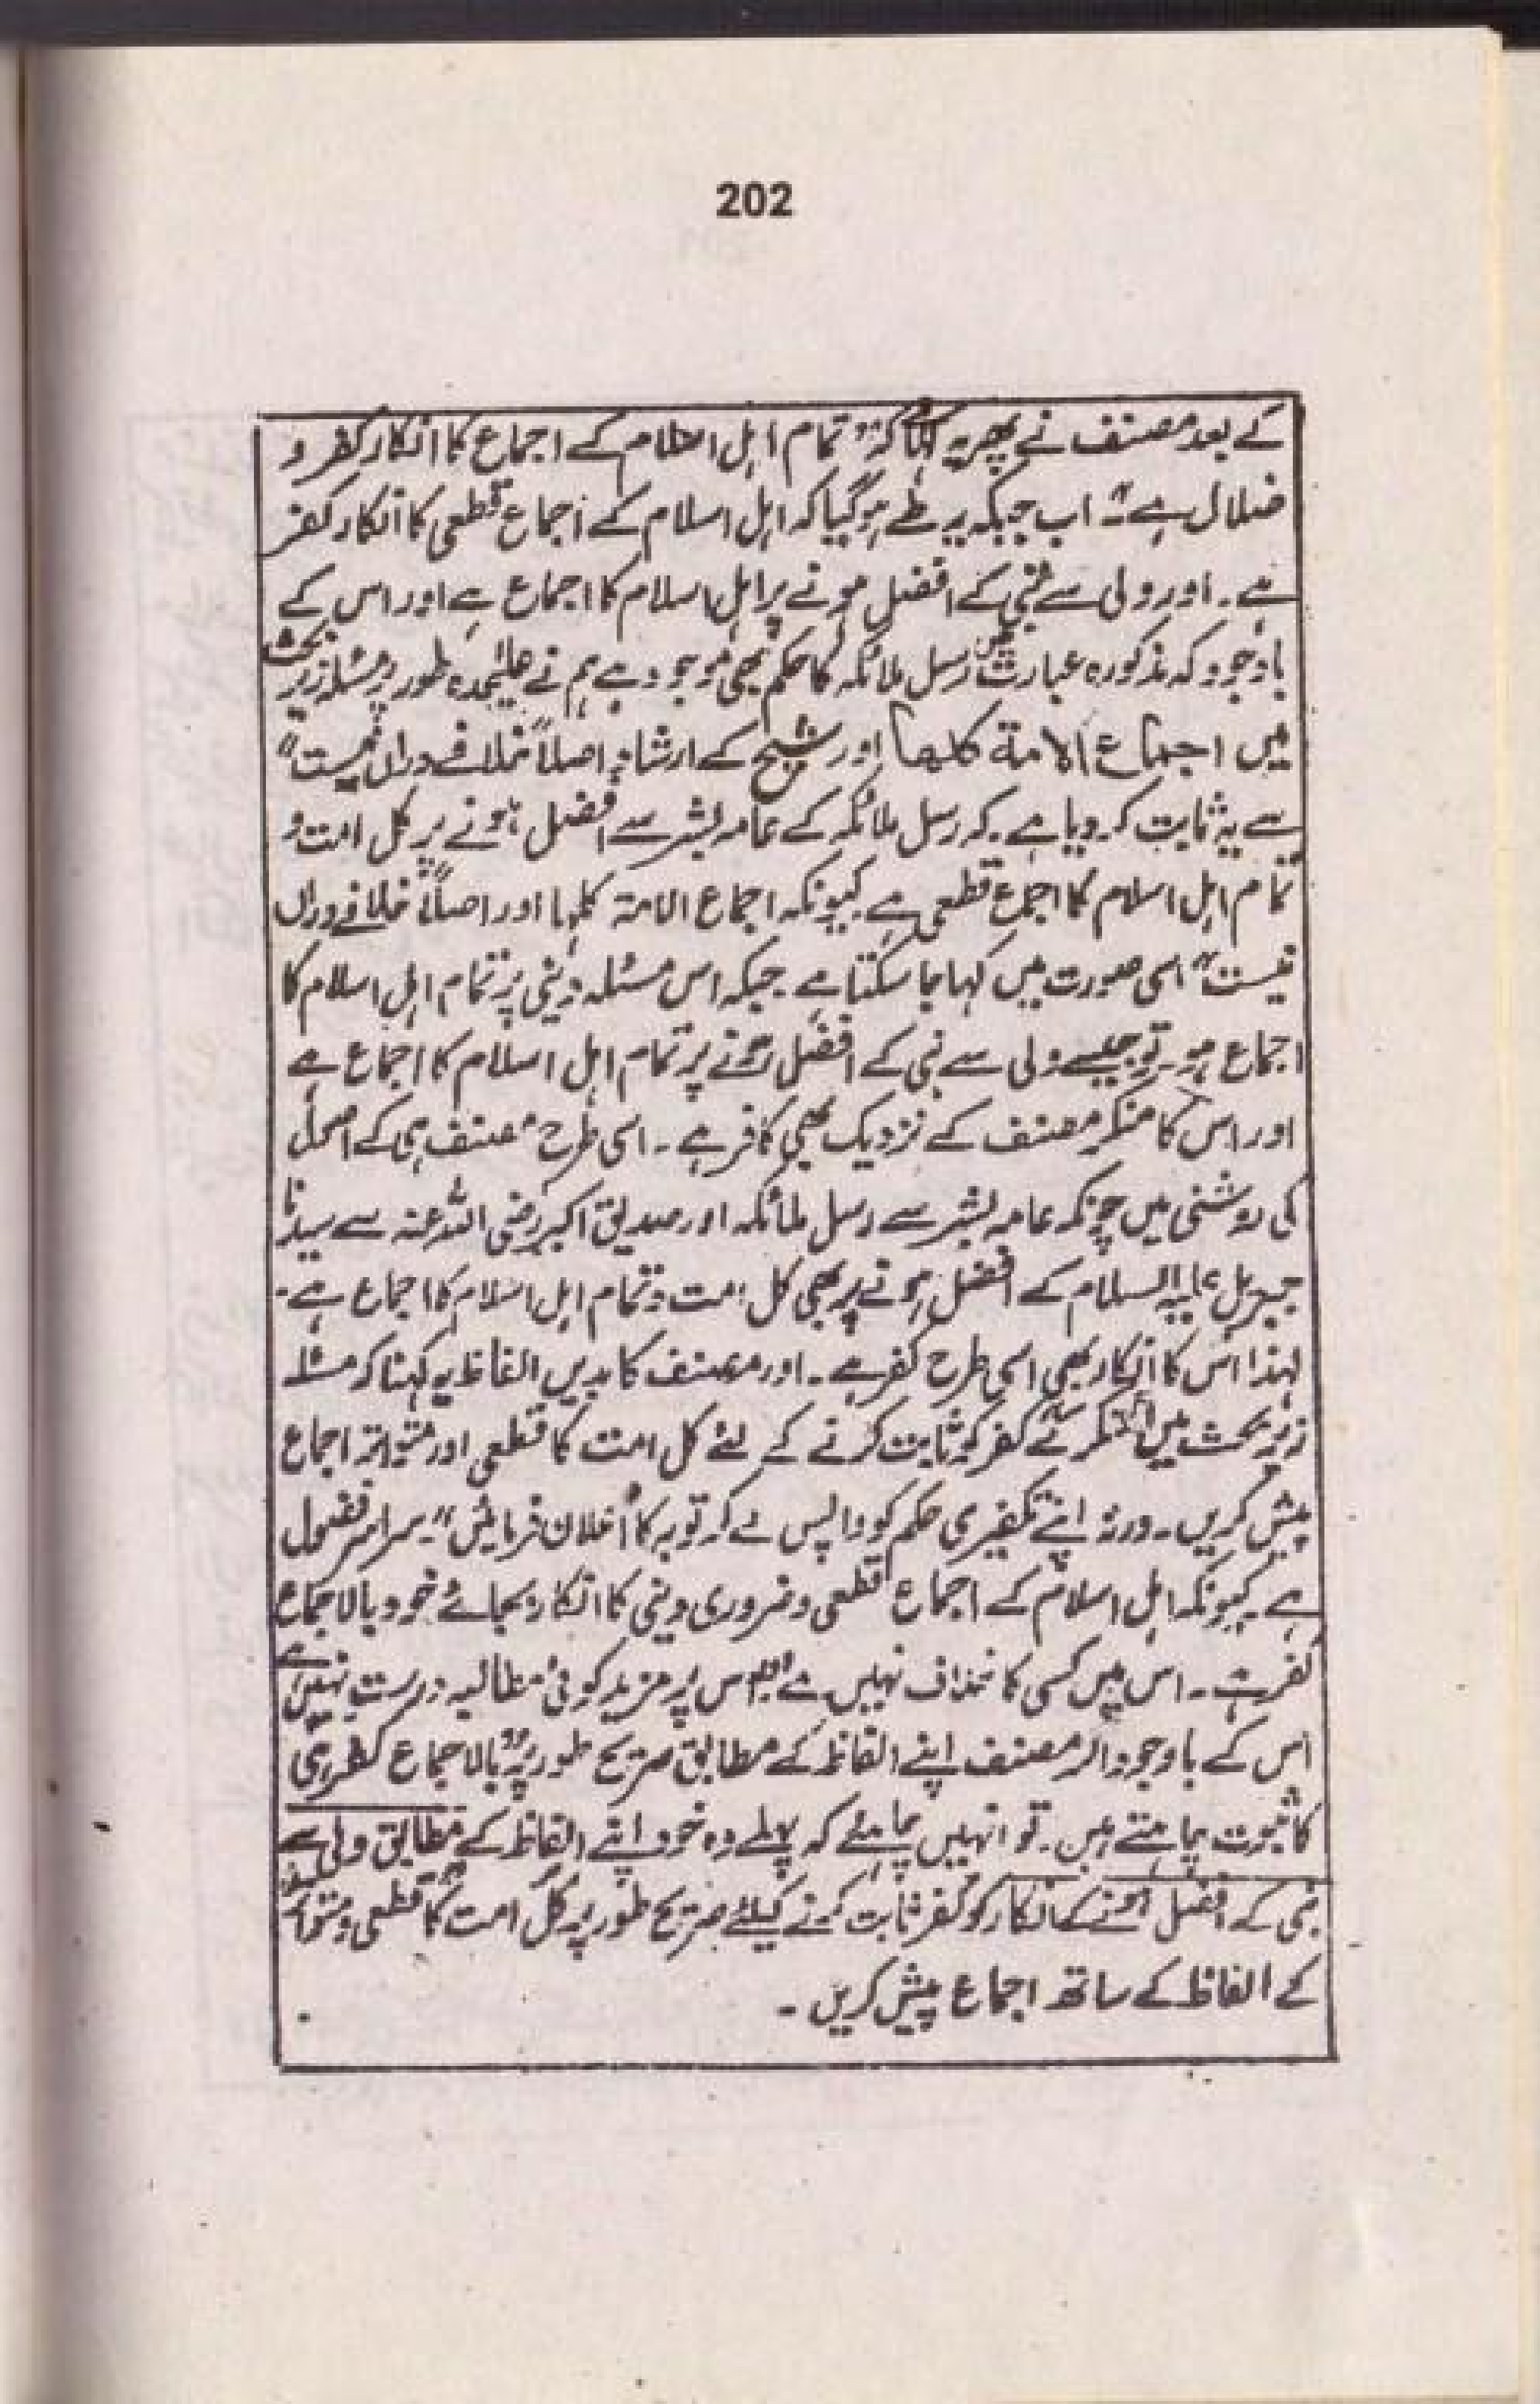 202
کے بعد مصنف نے پھر یہ کہا کہ" تمام اہل اسلام کے اجماع کا انکار کفر و
ضلال ہے"۔ اب جبکہ یہ طے ہوگیا کہ اہل اسلام کے اجماع قطعی کا انکار کفر
ہے۔ اور ولی سے نبی کے افضل ہونے پر اہل اسلام کا اجماع ہے اور اس کے
باوجود کہ مذکورہ عبارت میں رسل ملائکہ کا حکم بھی موجود ہے ہم نے علیحدہ طور پر مسئلہ زیر بحث
میں اجماع الامة کلھا اور شیخ کے ارشاد اصلاً خلافے دراں نیست"
سے یہ ثابت کر دیا ہے۔ کہ رسل ملائکہ کے عامہ بشر سے افضل ہونے پر کل امت و
تمام اہل اسلام کا اجماع قطعی ہے کیونکہ اجماع الامۃ کلہا اور اصلاً خلافے دراں
نیست" اسی صورت میں کہا جا سکتا ہے جبکہ اس مسئلہ دینی پر تمام اہل اسلام کا
اجماع ہو۔ تو جیسے ولی سے نبی کے افضل ہونے پر تمام اہل اسلام کا اجماع ہے
اور اس کا منکر مصنف کے نزدیک بھی کافر ہے۔ اسی طرح مصنف ہی کے اصول
کی روشنی میں چونکہ عامہ بشر سے رسل ملائکہ اور صدیق اکبر رضی اللہ عنہ سے سیدنا
جبریل علیہ السلام کے افضل ہونے پر بھی کل امت و تمام اہل اسلام کا اجماع ہے۔
لہذا اس کا انکار بھی اسی طرح کفر ہے۔ اور مصنف کا بدیں الفاظ یہ کہنا کہ مسئلہ
زیر بحث میں منکر کے کفر کو ثابت کرنے کے لئے کل امت کا قطعی اور متواتر اجماع
پیش کریں۔ ورنہ اپنے تکفیری حکم کو واپس لے کر توبہ کا اعلان فرمائیں"۔ سراسر فضول
ہے کیونکہ اہل اسلام کے اجماع قطعی و ضروری دینی کا انکار بجائے خود بالاجماع
کفر ہے۔ اس میں کسی کا خلاف نہیں ہے اس پر مزید کوئی مطالبہ درست نہیں ہے
اس کے باوجود اگر مصنف اپنے الفاظ کے مطابق صریح طور پر" بالاجماع کفر ہی
کا ثبوت چاہتے ہیں۔ تو انہیں چاہئے کہ پہلے وہ خود اپنے الفاظ کے مطابق ولی سے
نبی کے افضل ہونے کے انکار کو کفر ثابت کرنے کیلئے صریح طور پر کل امت کا قطعی و متواتر
کے الفاظ کے ساتھ اجماع پیش کریں۔